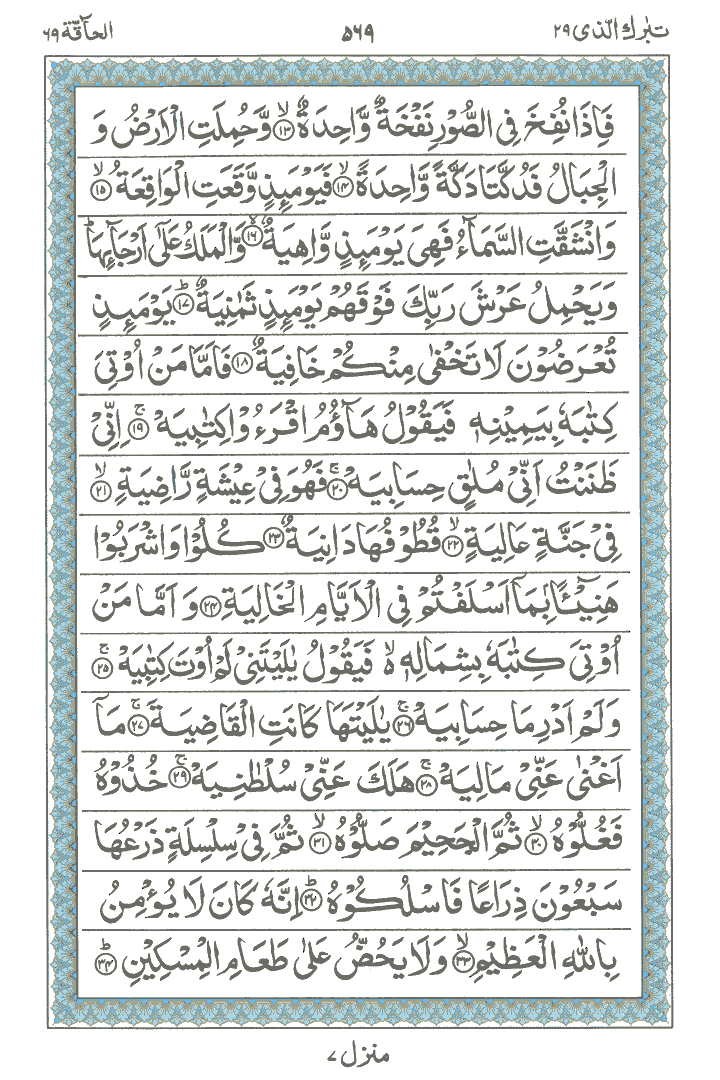 تبٰرك الّذی ٢٩ ۵٦٩ الحآقّة ٦٩
فَاِذَا نُفِخَ فِی الصُّوْرِ نَفْخَةٌ وَّاحِدَةٌ ۙ﴿١٣﴾ وَّحُمِلَتِ الْاَرْضُ وَ
الْجِبَالُ فَدُكَّتَا دَكَّةً وَّاحِدَةً ۙ﴿١٤﴾ فَیَوْمَىِٕذٍ وَّقَعَتِ الْوَاقِعَةُ ۙ﴿١٥﴾
وَانْشَقَّتِ السَّمَآءُ فَهِیَ یَوْمَىِٕذٍ وَّاهِیَةٌ ۙ﴿١٦﴾ وَّالْمَلَكُ عَلٰۤی اَرْجَآىِٕهَا ؕ
وَیَحْمِلُ عَرْشَ رَبِّكَ فَوْقَهُمْ یَوْمَىِٕذٍ ثَمٰنِیَةٌ ؕ﴿١٧﴾ یَوْمَىِٕذٍ
تُعْرَضُوْنَ لَا تَخْفٰی مِنْكُمْ خَافِیَةٌ ﴿١٨﴾ فَاَمَّا مَنْ اُوْتِیَ
كِتٰبَهٗ بِیَمِیْنِهٖ فَیَقُوْلُ هَآؤُمُ اقْرَءُوْا كِتٰبِیَهْ ۚ﴿١٩﴾ اِنِّیْ
ظَنَنْتُ اَنِّیْ مُلٰقٍ حِسَابِیَهْ ۚ﴿٢٠﴾ فَهُوَ فِیْ عِیْشَةٍ رَّاضِیَةٍ ۙ﴿٢١﴾
فِیْ جَنَّةٍ عَالِیَةٍ ۙ﴿٢٢﴾ قُطُوْفُهَا دَانِیَةٌ ﴿٢٣﴾ كُلُوْا وَاشْرَبُوْا
هَنِیْٓـًٔۢا بِمَاۤ اَسْلَفْتُمْ فِی الْاَیَّامِ الْخَالِیَةِ ﴿٢٤﴾ وَاَمَّا مَنْ
اُوْتِیَ كِتٰبَهٗ بِشِمَالِهٖ ۙ۬ فَیَقُوْلُ یٰلَیْتَنِیْ لَمْ اُوْتَ كِتٰبِیَهْ ۚ﴿٢٥﴾
وَلَمْ اَدْرِ مَا حِسَابِیَهْ ۚ﴿٢٦﴾ یٰلَیْتَهَا كَانَتِ الْقَاضِیَةَ ۚ﴿٢٧﴾ مَاۤ
اَغْنٰی عَنِّیْ مَالِیَهْ ۚ﴿٢٨﴾ هَلَكَ عَنِّیْ سُلْطٰنِیَهْ ۚ﴿٢٩﴾ خُذُوْهُ
فَغُلُّوْهُ ۙ﴿٣٠﴾ ثُمَّ الْجَحِیْمَ صَلُّوْهُ ۙ﴿٣١﴾ ثُمَّ فِیْ سِلْسِلَةٍ ذَرْعُهَا
سَبْعُوْنَ ذِرَاعًا فَاسْلُكُوْهُ ؕ﴿٣٢﴾ اِنَّهٗ كَانَ لَا یُؤْمِنُ
بِاللّٰهِ الْعَظِیْمِ ۙ﴿٣٣﴾ وَلَا یَحُضُّ عَلٰی طَعَامِ الْمِسْكِیْنِ ؕ﴿٣٤﴾
منزل ٧